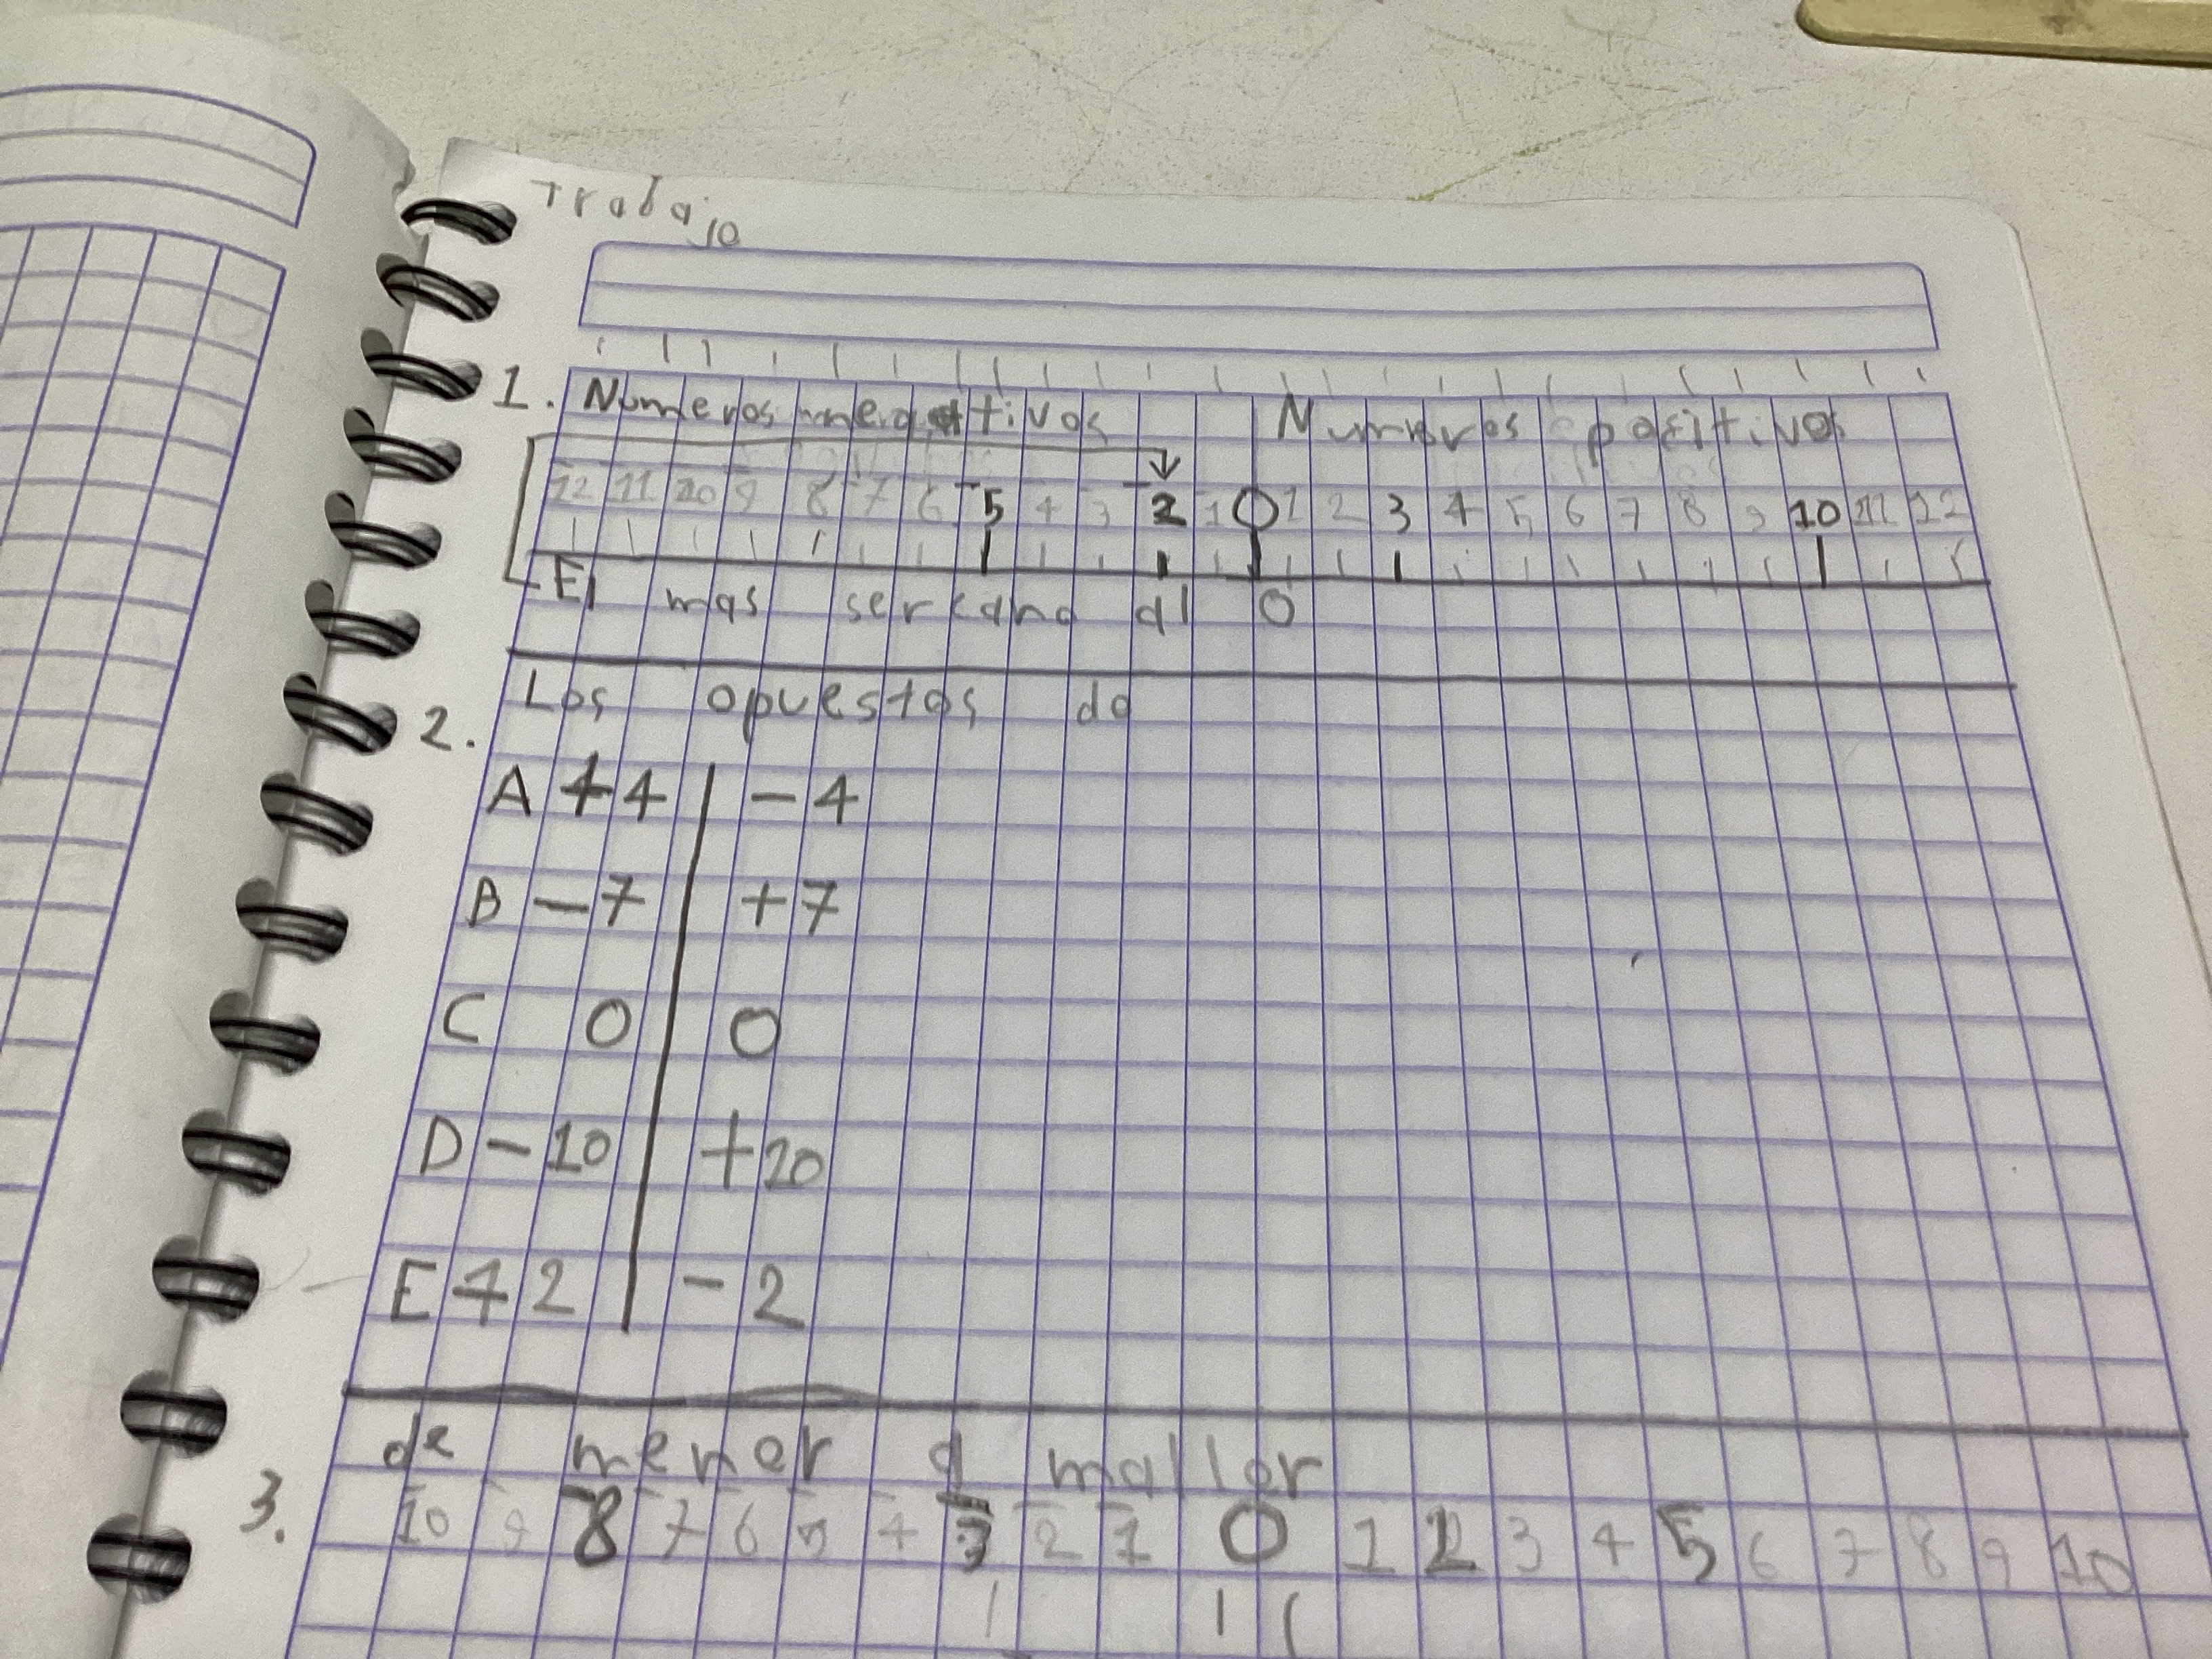 Trabajo
1. Numeros negativos Numeros positivos
-12 -11 -10 -9 -8 -7 -6 -5 -4 -3 -2 -1 0 1 2 3 4 5 6 7 8 9 10 11 12
El mas sercano al 0
2. Los opuestos de
A +4 | -4
B -7 | +7
C 0 | 0
D -10 | +10
E +2 | -2
3. de menor a mallor
-10 -9 -8 -7 -6 -5 -4 -3 -2 -1 0 1 2 3 4 5 6 7 8 9 10